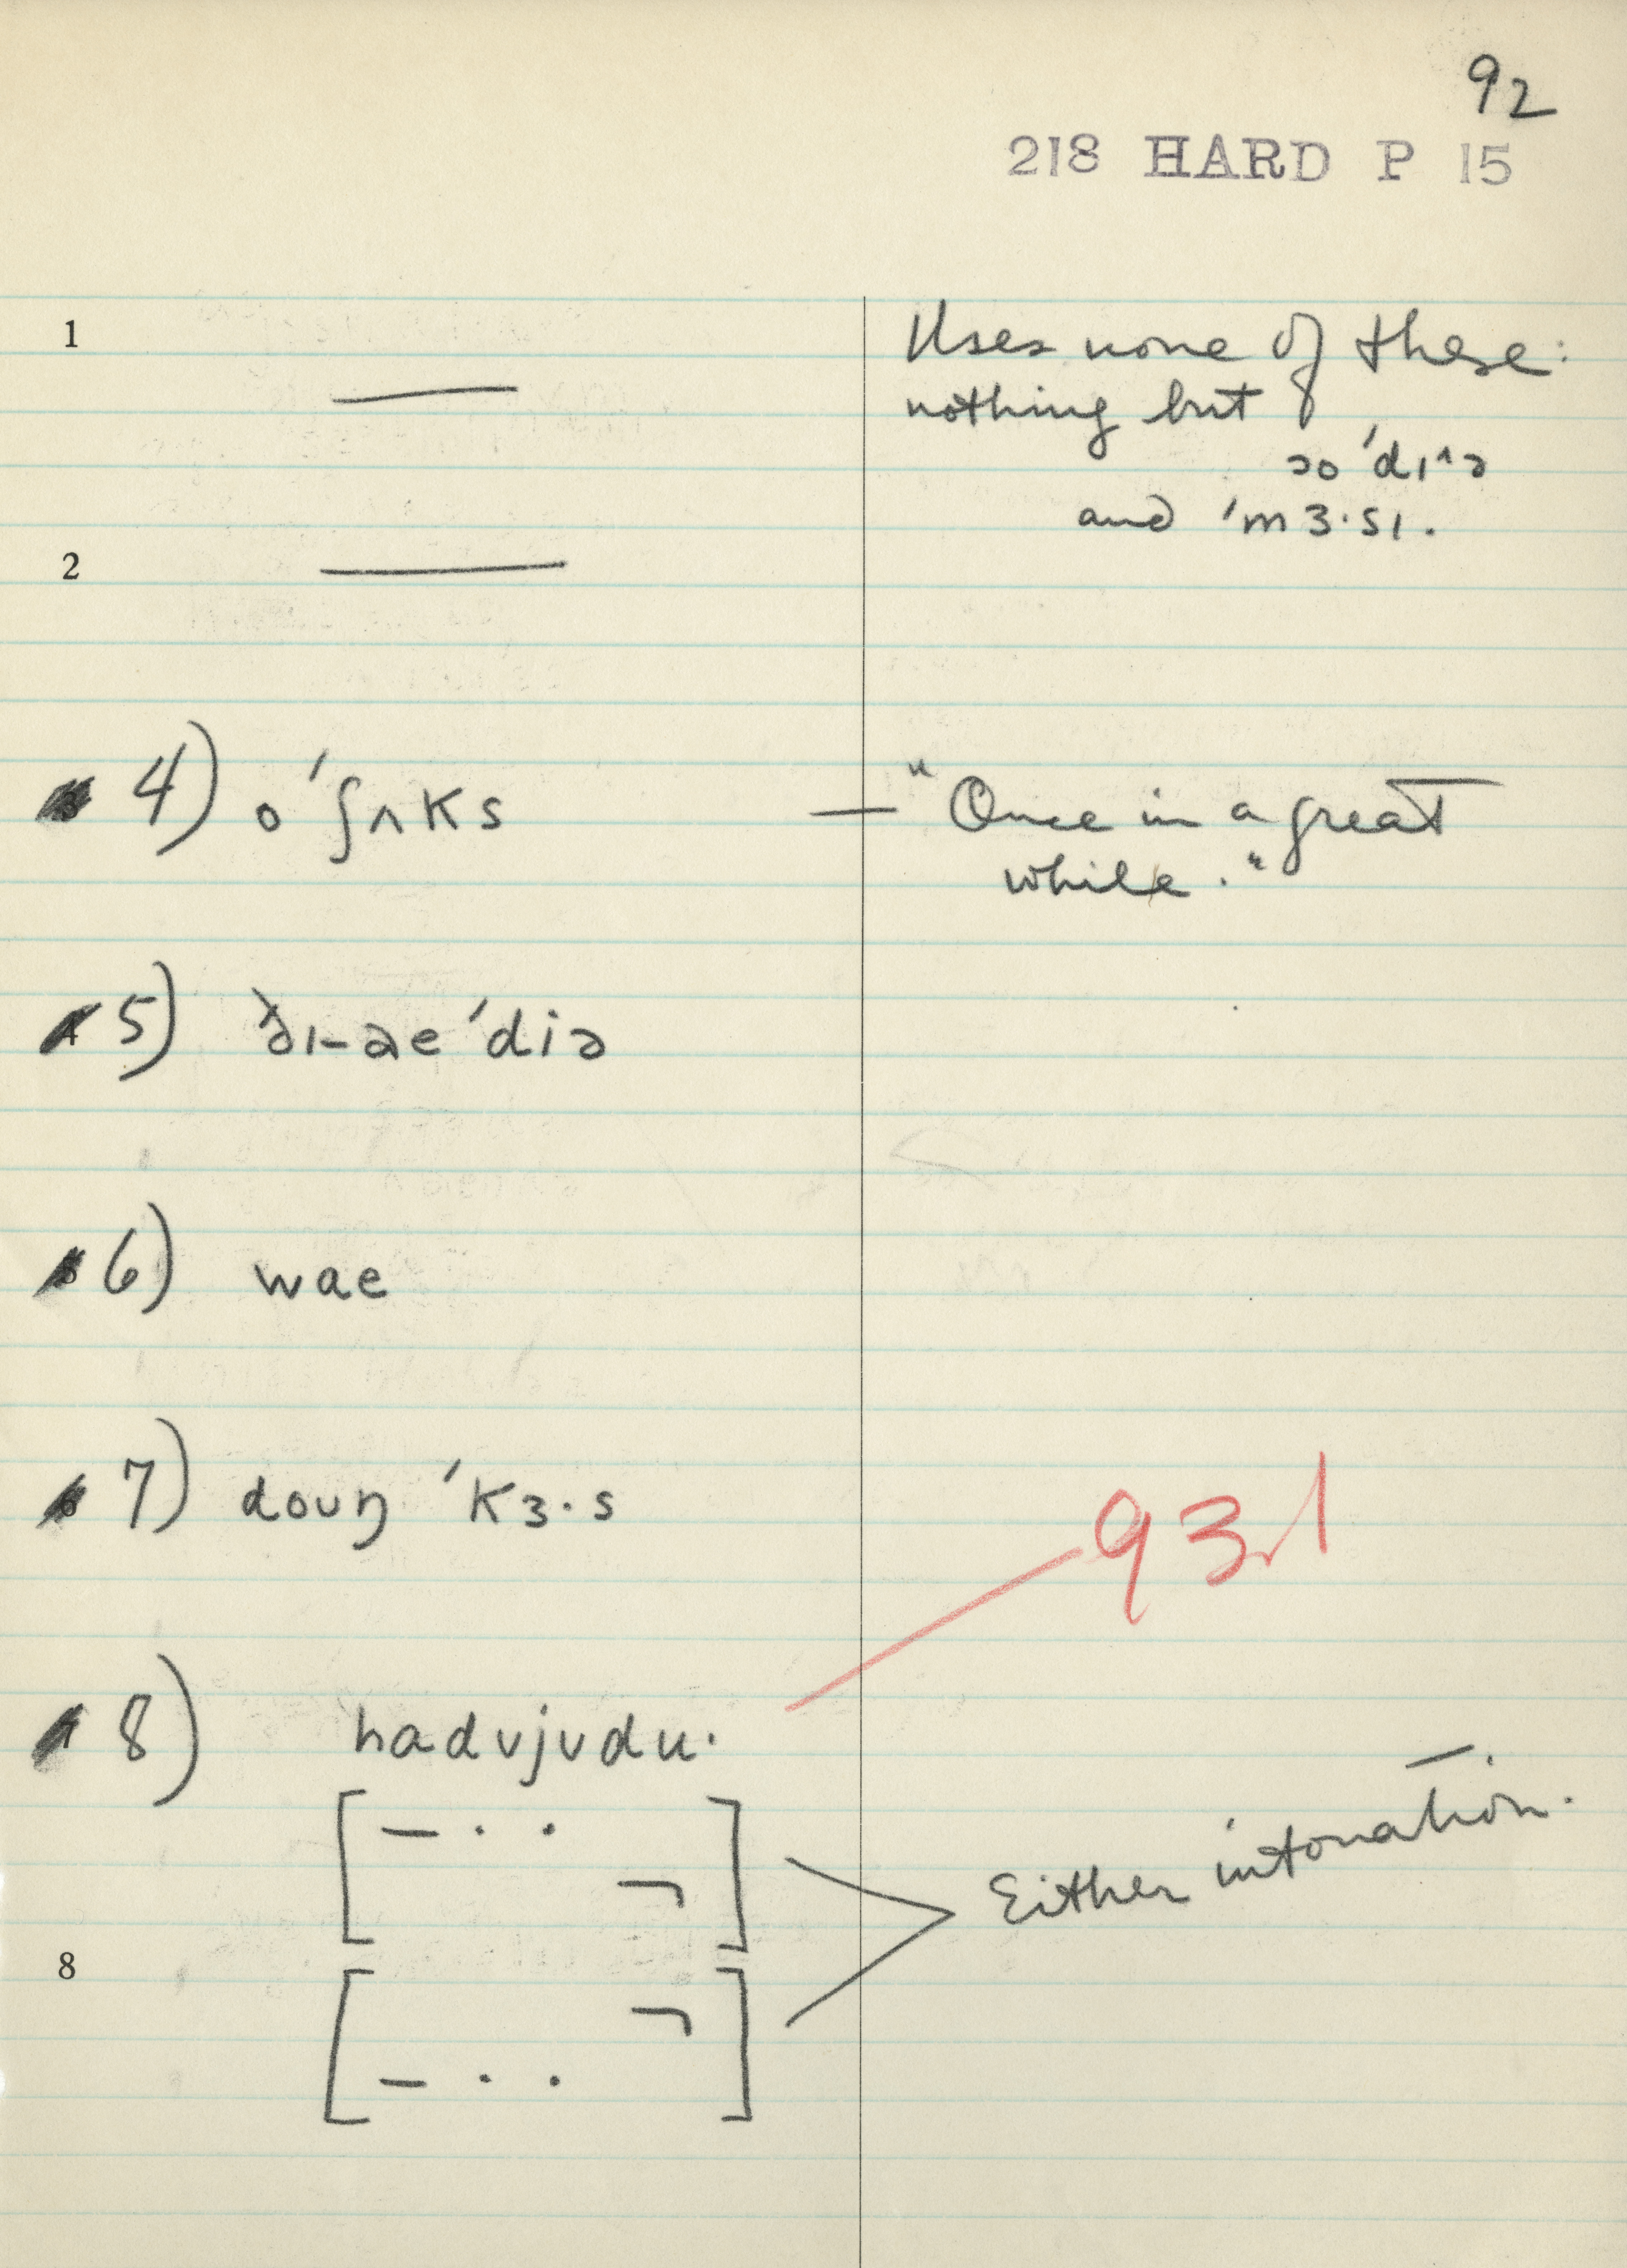 92
218 HARD P 15
1 —— Uses none of these:
nothing but
ɔo ˈdɪ^ə
and ˈmɜ·sɪ.
2 ——
4) oˈʃʌks — "Once in a great
while."
5) ðɪ-aeˈdiə
6) wae
7) doʊŋ ˈkɜ·s
93.1
8) hadʊjʊdu·
[— · · ¬]
Either intonation.
8
[— · · ¬]